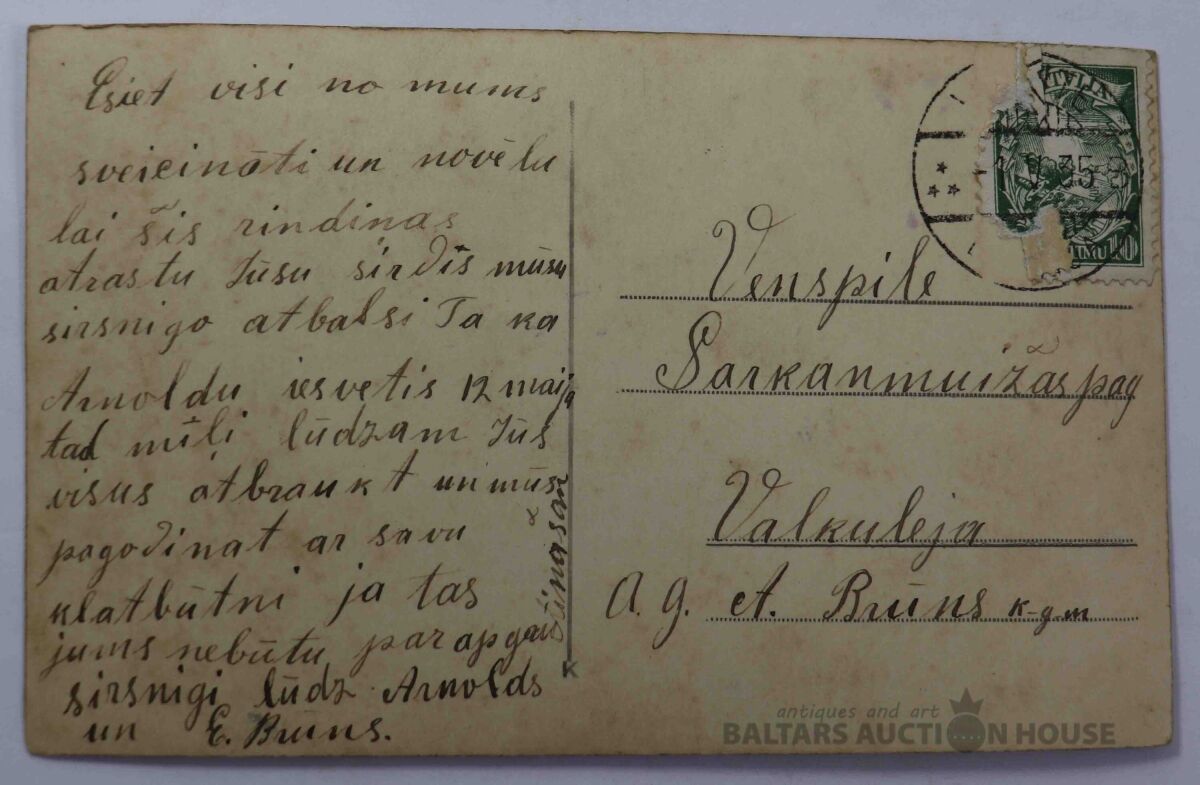 Esiet visi no mums
sveicināti un novēlu
lai šis rindinas
atrastu Jūsu sirdis mūsu
sirsnigo atbalsi Ta ka
Arnoldu iesvetis 12 maija
tad mīļi lūdzam Jūs
visus atbraukt un mūs
pagodinat ar savu
klatbūtni ja tas
jums nebūtu par apgrū
sirsnigi lūdz Arnolds
un E. Brūns.
LATVIJA
1 V 35-8
10
Venspile
Sarkanmuižas pag
Valkuleja
A. g. A. Brūns k-g.m
antiques and art
BALTARS AUCTION HOUSE